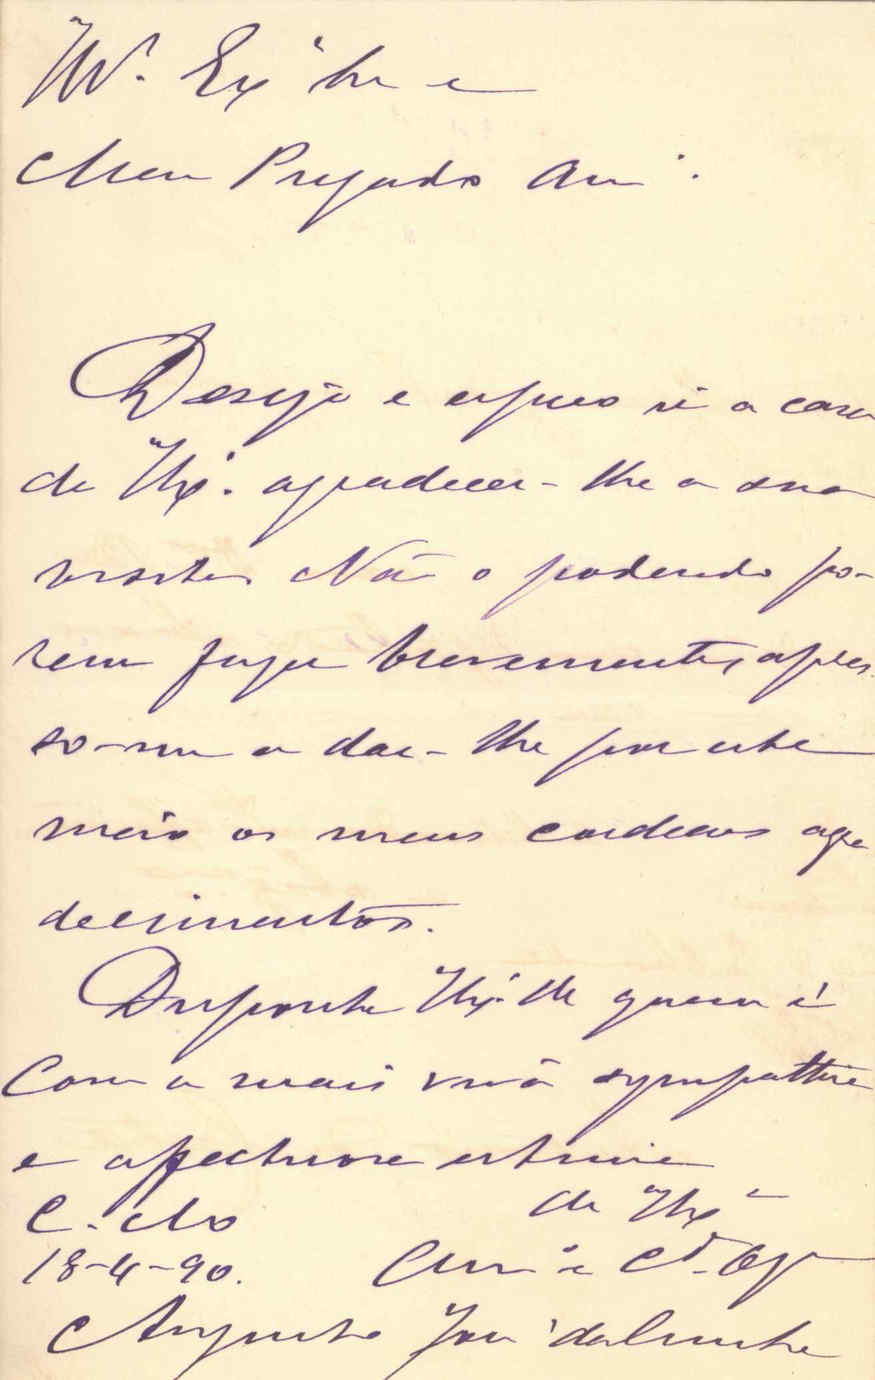 Meu Prezado Am.º
Desejo e espero ir a casa
de V. Ex.ª agradecer-lhe a sua
visita. Não o podendo po-
rem fazer brevemente, apres-
so-me a dar-lhe por este
meio os meus cordeaes agra
decimentos.
Disponha V. Ex.ª de quem é
Com a mais viva sympathia
e affectuosa estima
de V. Ex.ª
C.
18-4-90.
Augusto José da Cunha